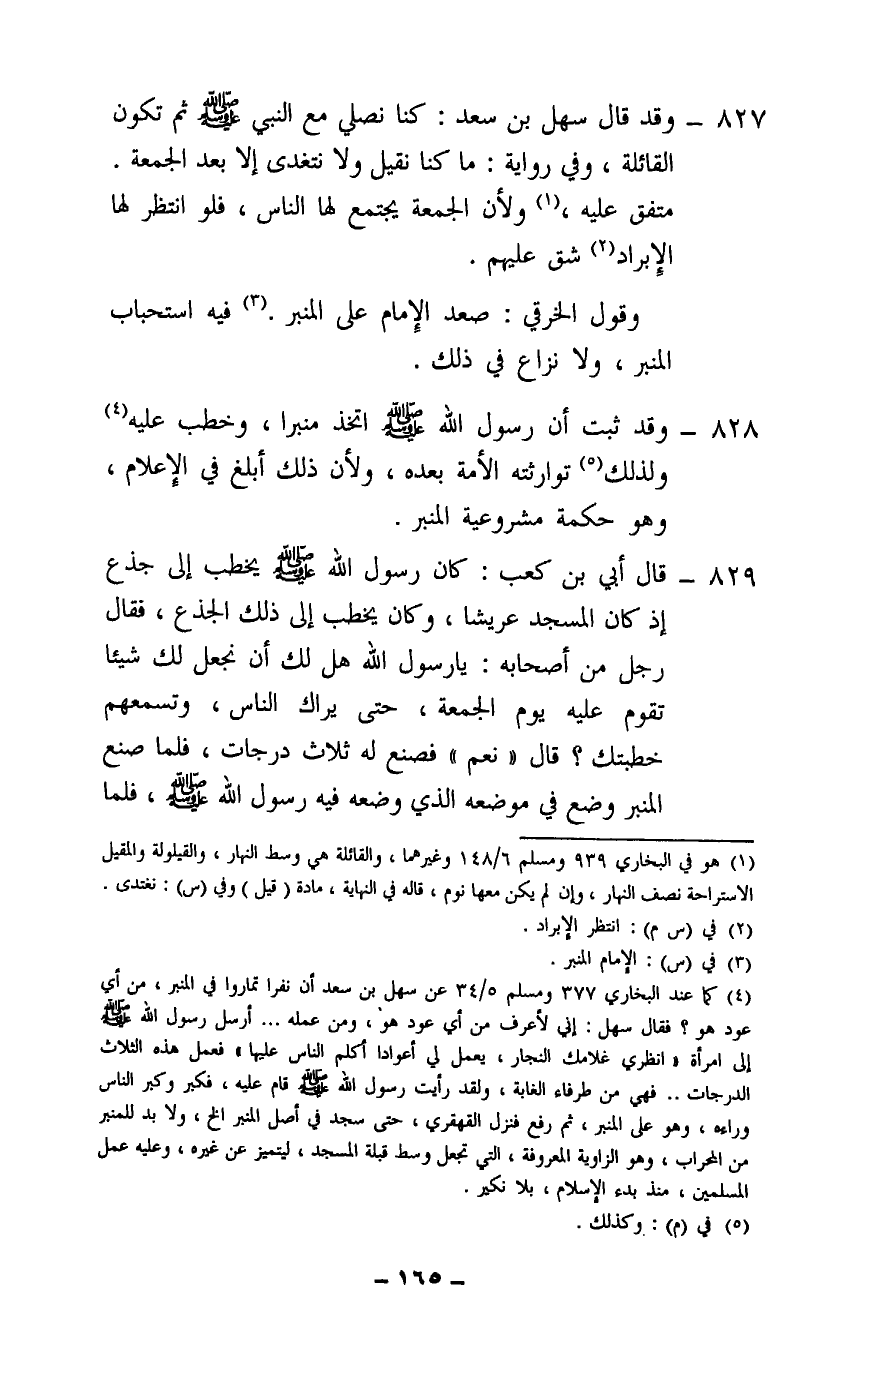 ٨٢٧ – وقد قال سهل بن سعد : كنا نصلي مع النبي ﷺ ثم تكون
القائلة ، وفي رواية : ما كنا نقيل ولا نتغدى إلا بعد الجمعة .
متفق عليه ،(١) ولأن الجمعة يجتمع لها الناس ، فلو انتظر لها
الإبراد(٢) شق عليهم .
وقول الخرقي : صعد الإمام على المنبر .(٣) فيه استحباب
المنبر ، ولا نزاع في ذلك .
٨٢٨ – وقد ثبت أن رسول الله ﷺ اتخذ منبرا ، وخطب عليه(٤)
ولذلك(٥) توارثته الأمة بعده ، ولأن ذلك أبلغ في الإعلام ،
وهو حكمة مشروعية المنبر .
٨٢٩ – قال أبي بن كعب : كان رسول الله ﷺ يخطب إلى جذع
إذ كان المسجد عريشا ، وكان يخطب إلى ذلك الجذع ، فقال
رجل من أصحابه : يارسول الله هل لك أن نجعل لك شيئا
تقوم عليه يوم الجمعة ، حتى يراك الناس ، وتسمعهم
خطبتك ؟ قال « نعم » فصنع له ثلاث درجات ، فلما صنع
المنبر وضع في موضعه الذي وضعه فيه رسول الله ﷺ ، فلما
(١) هو في البخاري ٩٣٩ ومسلم ١٤٨/٦ وغيرهما ، والقائلة هي وسط النهار ، والقيلولة والمقيل
الاستراحة نصف النهار ، وإن لم يكن معها نوم ، قاله في النهاية ، مادة ( قيل ) وفي (س) : نغتدى .
(٢) في (س م) : انتظر الإبراد .
(٣) في (س) : الإمام المنبر .
(٤) كما عند البخاري ٣٧٧ ومسلم ٣٤/٥ عن سهل بن سعد أن نفرا تماروا في المنبر ، من أي
عود هو ؟ فقال سهل : إني لأعرف من أي عود هو ، ومن عمله ... أرسل رسول الله ﷺ
إلى امرأة « انظري غلامك النجار ، يعمل لي أعوادا أكلم الناس عليها » فعمل هذه الثلاث
الدرجات .. فهي من طرفاء الغابة ، ولقد رأيت رسول الله ﷺ قام عليه ، فكبر وكبر الناس
وراءه ، وهو على المنبر ، ثم رفع فنزل القهقري ، حتى سجد في أصل المنبر الخ ، ولا بد للمنبر
من المحراب ، وهو الزاوية المعروفة ، التي تجعل وسط قبلة المسجد ، ليتميز عن غيره ، وعليه عمل
المسلمين ، منذ بدء الإسلام ، بلا نكير .
(٥) في (م) : وكذلك .
– ١٦٥ –